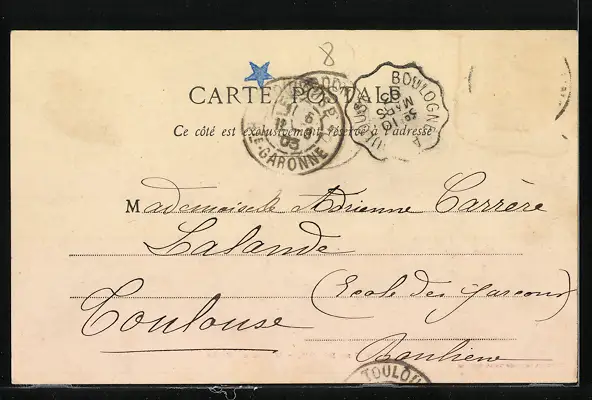 8
CARTE POSTALE
Ce côté est exclusivement réservé à l'adresse
BOULOGNE A
MARS
03
Hte-GARONNE
03
Mademoiselle Adrienne Carrère
Lalande
(Ecole des garçons)
Toulouse
Banlieue
TOULOU